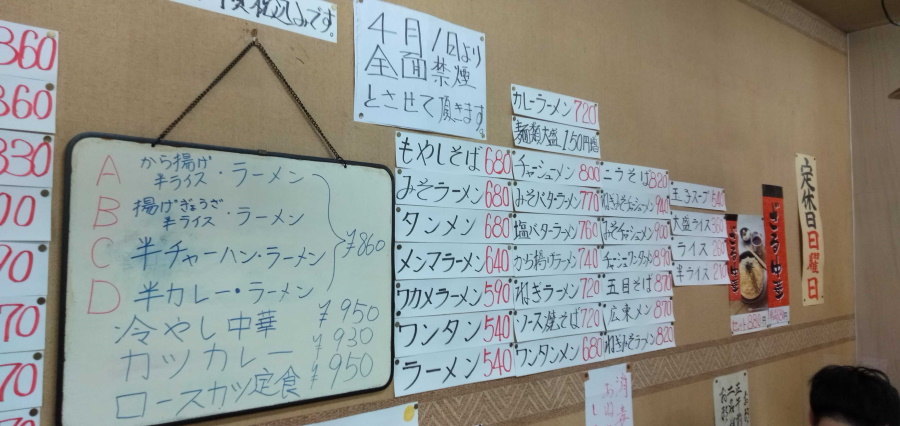 税込みです。
4月1日より
全面禁煙
とさせて頂きます。
360
360
330
00
70
70
70
A から揚げ
半ライス・ラーメン
B 揚げぎょうざ
半ライス・ラーメン
C 半チャーハン・ラーメン
D 半カレー・ラーメン
¥860
冷やし中華 ¥950
カツカレー ¥930
ロースカツ定食 ¥950
もやしそば 680
みそラーメン 680
タンメン 680
メンマラーメン 640
ワカメラーメン 590
ワンタン 540
ラーメン 540
カレーラーメン 720
麺類大盛 150円増
チャーシューメン 800
みそバターラーメン 770
塩バターラーメン 760
から揚げラーメン 740
ねぎラーメン 720
ソース焼そば 720
ワンタンメン 680
ニラそば 820
ねぎみそチャーシューメン 940
みそチャーシューメン 900
チャーシューワンタンメン 890
五目そば 870
広東メン 870
ねぎみそラーメン 820
玉子スープ 540
大盛ライス 360
ライス 260
半ライス 210
ざる中華
ざる中華
定休日日曜日